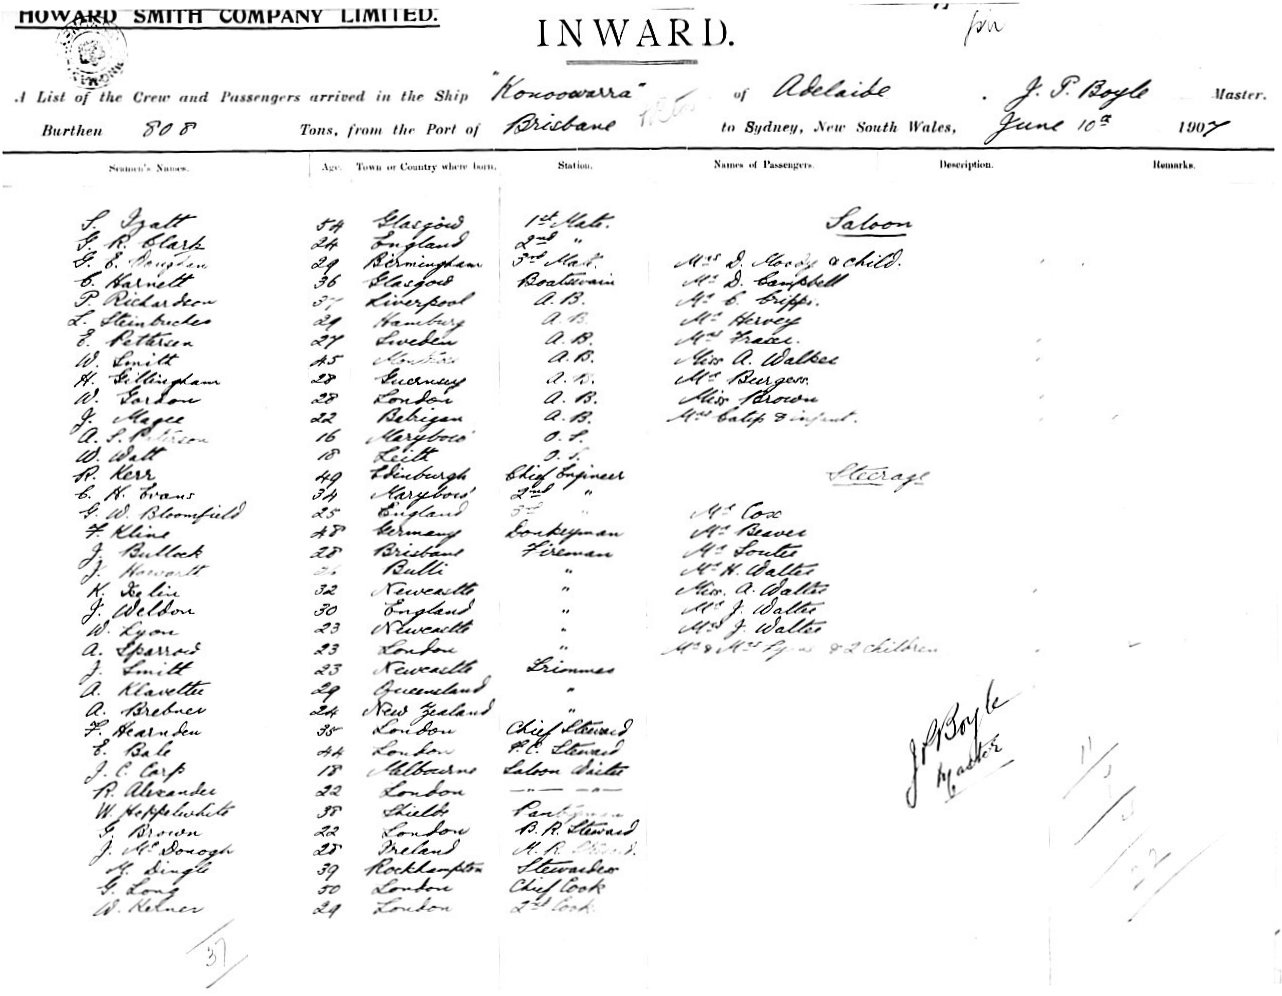 HOWARD SMITH COMPANY LIMITED.
INWARD.
A List of the Crew and Passengers arrived in the Ship "Konoowarra" of Adelaide . J. P. Boyle Master.
Burthen 808 Tons, from the Port of Brisbane to Sydney, New South Wales, June 10th 1907
Seamen's Names. Age. Town or Country where born. Station. Names of Passengers. Description. Remarks.
S. Izatt 54 Glasgow 1st Mate. Saloon
G. R. Clark 24 England 2nd "
G. E. 29 Birmingham 3rd Mate. Mrs D. Moody & child.
C. Harnett 36 Glasgow Boatswain Mr D. Campbell
P. Richardson 37 Liverpool A. B. Mr C. Cripps.
L. Steinbuches 29 Hamburg A. B. Mr Hervey
E. Pettersen 27 Sweden A. B. Mrs Fraser.
W. Smith 45 A. B. Miss A. Walker
H. Gillingham 28 Guernsey A. B. Mr Burgess.
W. Gordon 28 London A. B. Miss Brown
J. Magee 22 Balrigan A. B. Mrs & infant.
A. S. Peterson 16 Maryboro' O. S.
W. Watt 18 Leith O. S.
R. Kerr 49 Edinburgh Chief Engineer Steerage
C. H. Evans 34 Maryboro' 2nd "
G. W. Bloomfield 25 England 3rd " Mr Cox
F. Kline 48 Germany Donkeyman Mr Beaver
J. Bullock 28 Brisbane Fireman Mr Souter
J. Howorth 26 Bulli " Mr H. Walter
K. 32 Newcastle " Miss. A. Walter
J. Weldon 30 England " Mr J. Walter
W. Lyon 23 Newcastle " Mrs J. Walter
A. Sparrow 23 London " Mr & Mrs & 2 children
J. Smith 23 Newcastle Trimmer
A. Klavetter 29 Queensland "
A. Brebner 24 New Zealand "
F. Hearnden 35 London Chief Steward
E. Bale 44 London F. C. Steward
J. C. Carp 18 Melbourne Saloon Waiter
R. Alexander 22 London — " — — " —
W. Hepplewhite 38 Shields Pantryman
G. Brown 22 London B. R. Steward
J. McDonogh 28 Ireland M. R. Steward.
M. Dingle 39 Rockhampton Stewardess
G. Long 50 London Chief Cook
W. Kerner 29 London 2nd Cook.
J P Boyle
Master
37